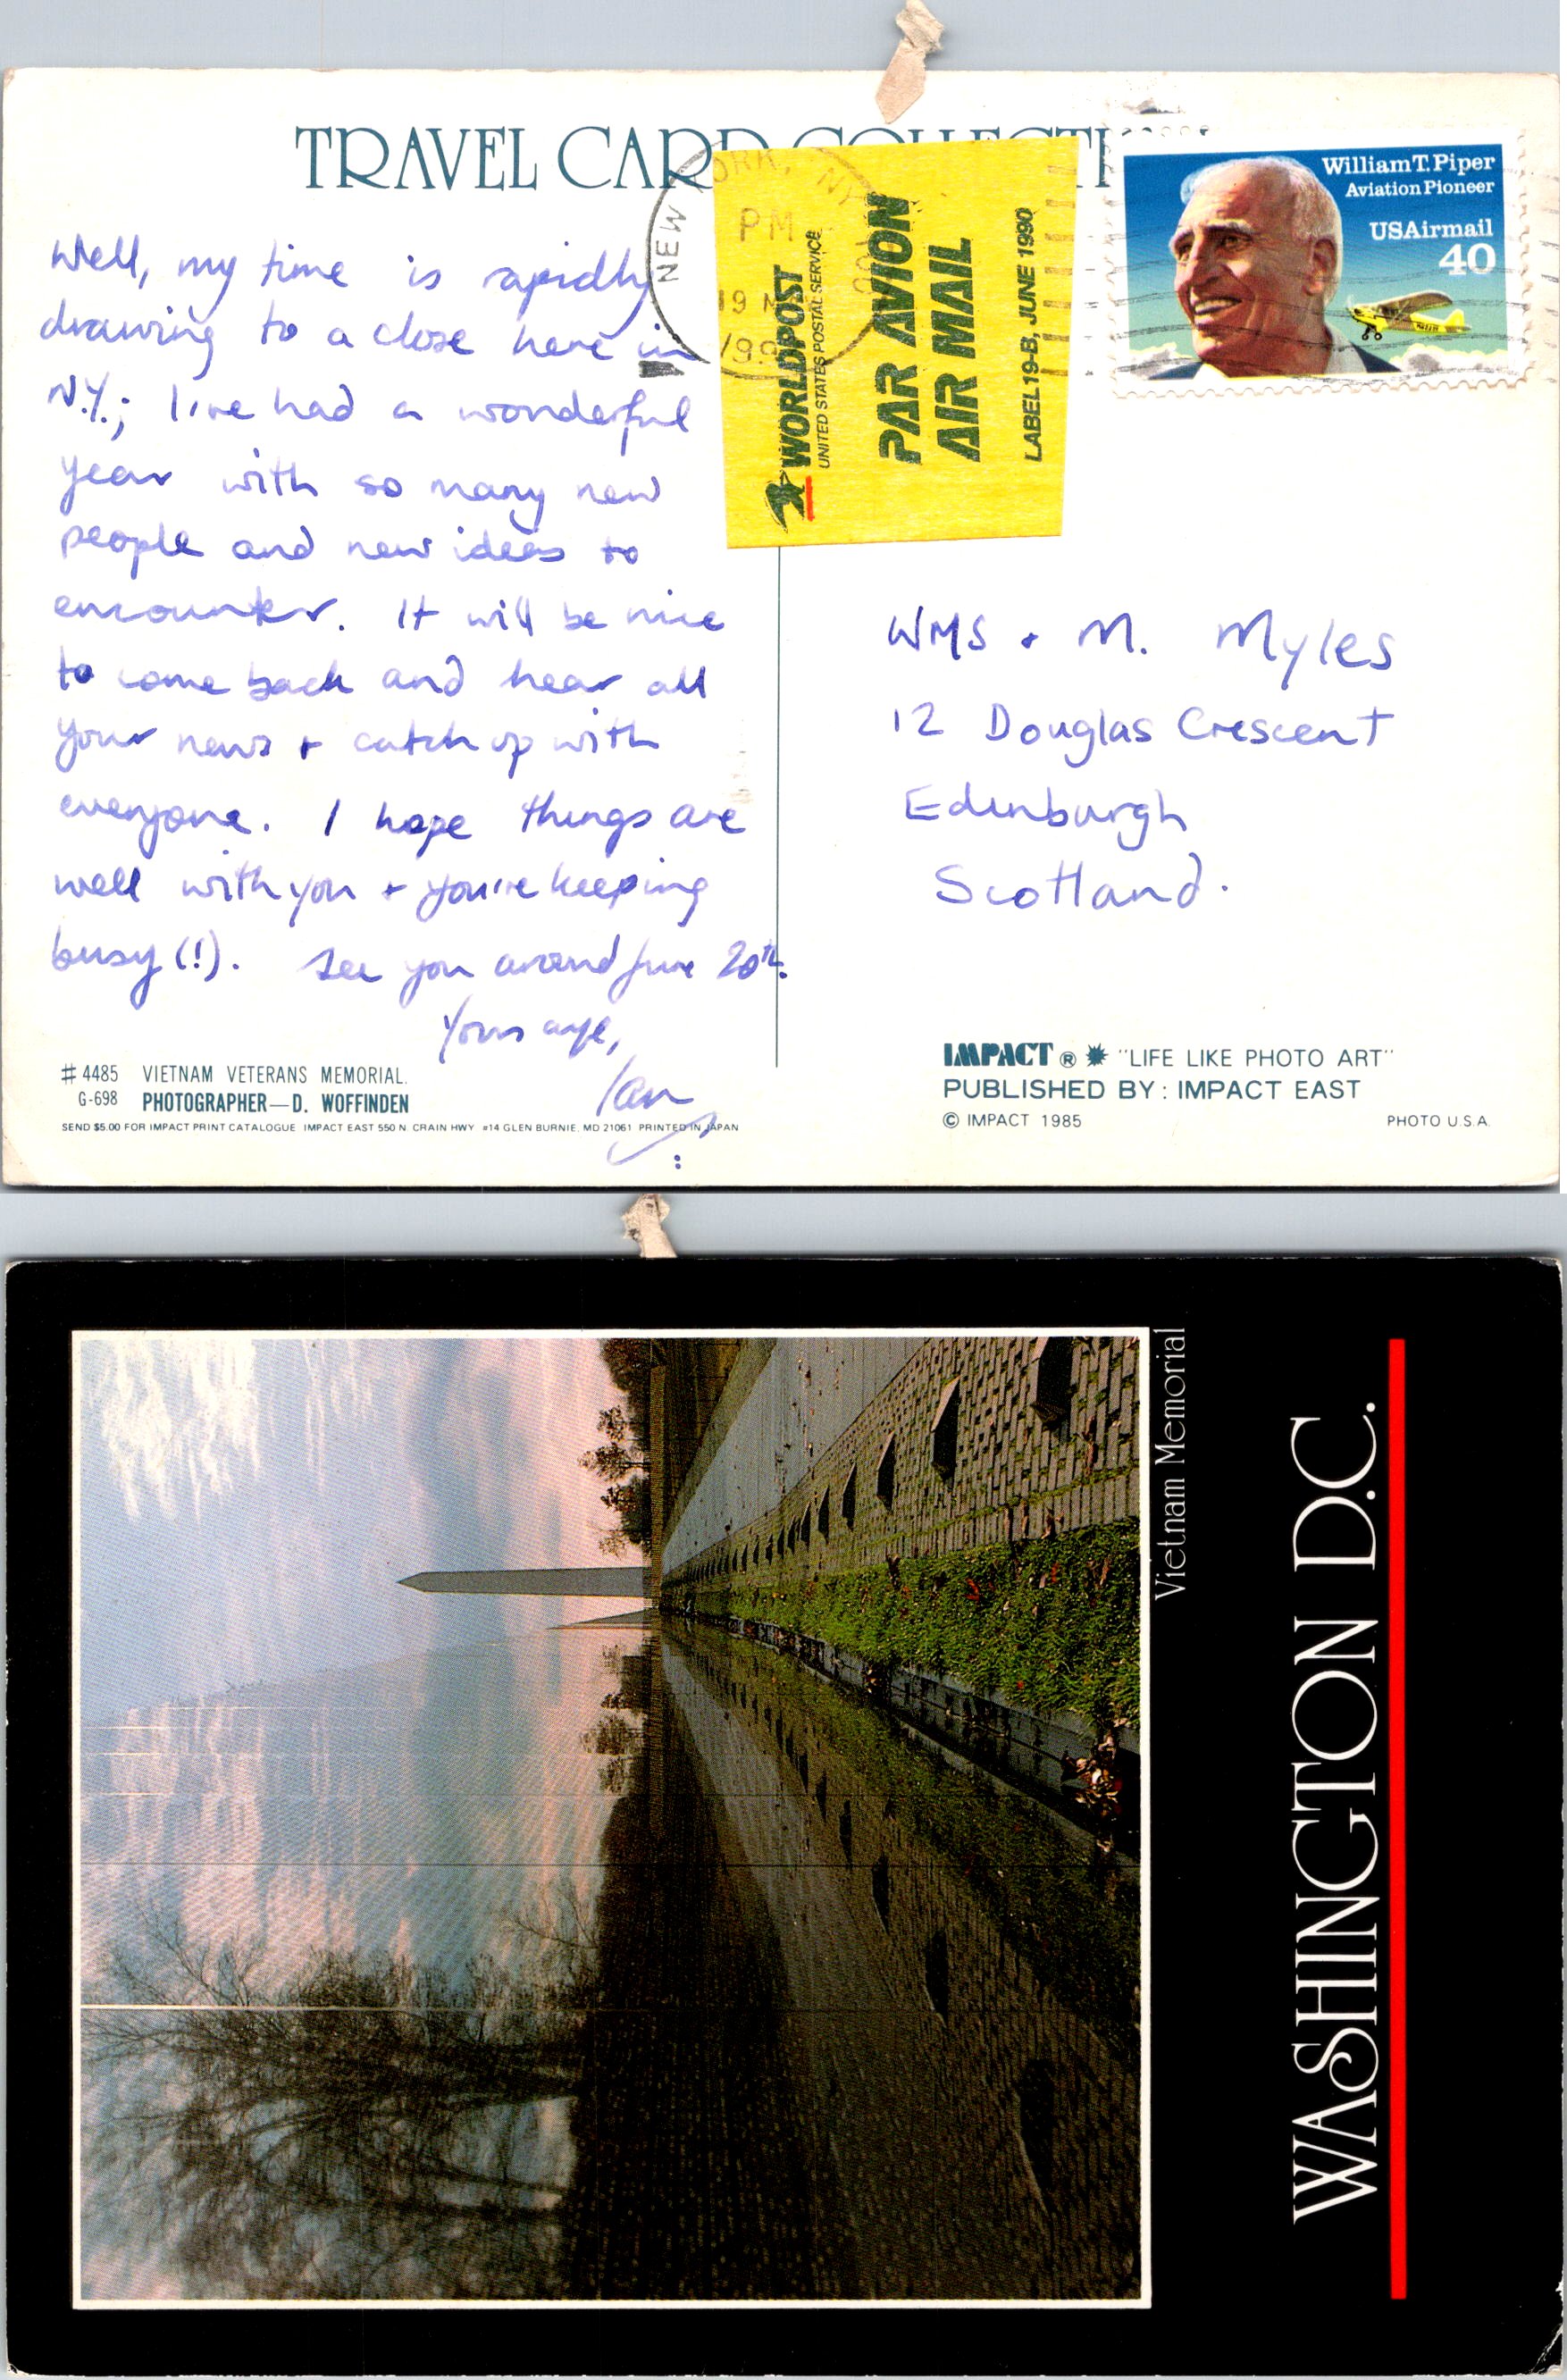 TRAVEL CARD COLLECTION
NEW YORK, NY
PM
19
199
WORLDPOST
UNITED STATES POSTAL SERVICE
PAR AVION
AIR MAIL
LABEL 19-B, JUNE 1990
William T. Piper
Aviation Pioneer
USAirmail
40
Well, my time is rapidly
drawing to a close here in
N.Y.; I've had a wonderful
year with so many new
people and new ideas to
encounter. It will be nice
to come back and hear all
your news + catch up with
everyone. I hope things are
well with you + you're keeping
busy (!). See you around June 20th.
Yours aye,
Ian
WMS + M. Myles
12 Douglas Crescent
Edinburgh
Scotland.
#4485 VIETNAM VETERANS MEMORIAL.
G-698 PHOTOGRAPHER—D. WOFFINDEN
SEND $5.00 FOR IMPACT PRINT CATALOGUE IMPACT EAST 550 N. CRAIN HWY #14 GLEN BURNIE, MD 21061 PRINTED IN JAPAN
IMPACT ® "LIFE LIKE PHOTO ART"
PUBLISHED BY: IMPACT EAST
© IMPACT 1985
PHOTO U.S.A.
Vietnam Memorial
WASHINGTON D.C.